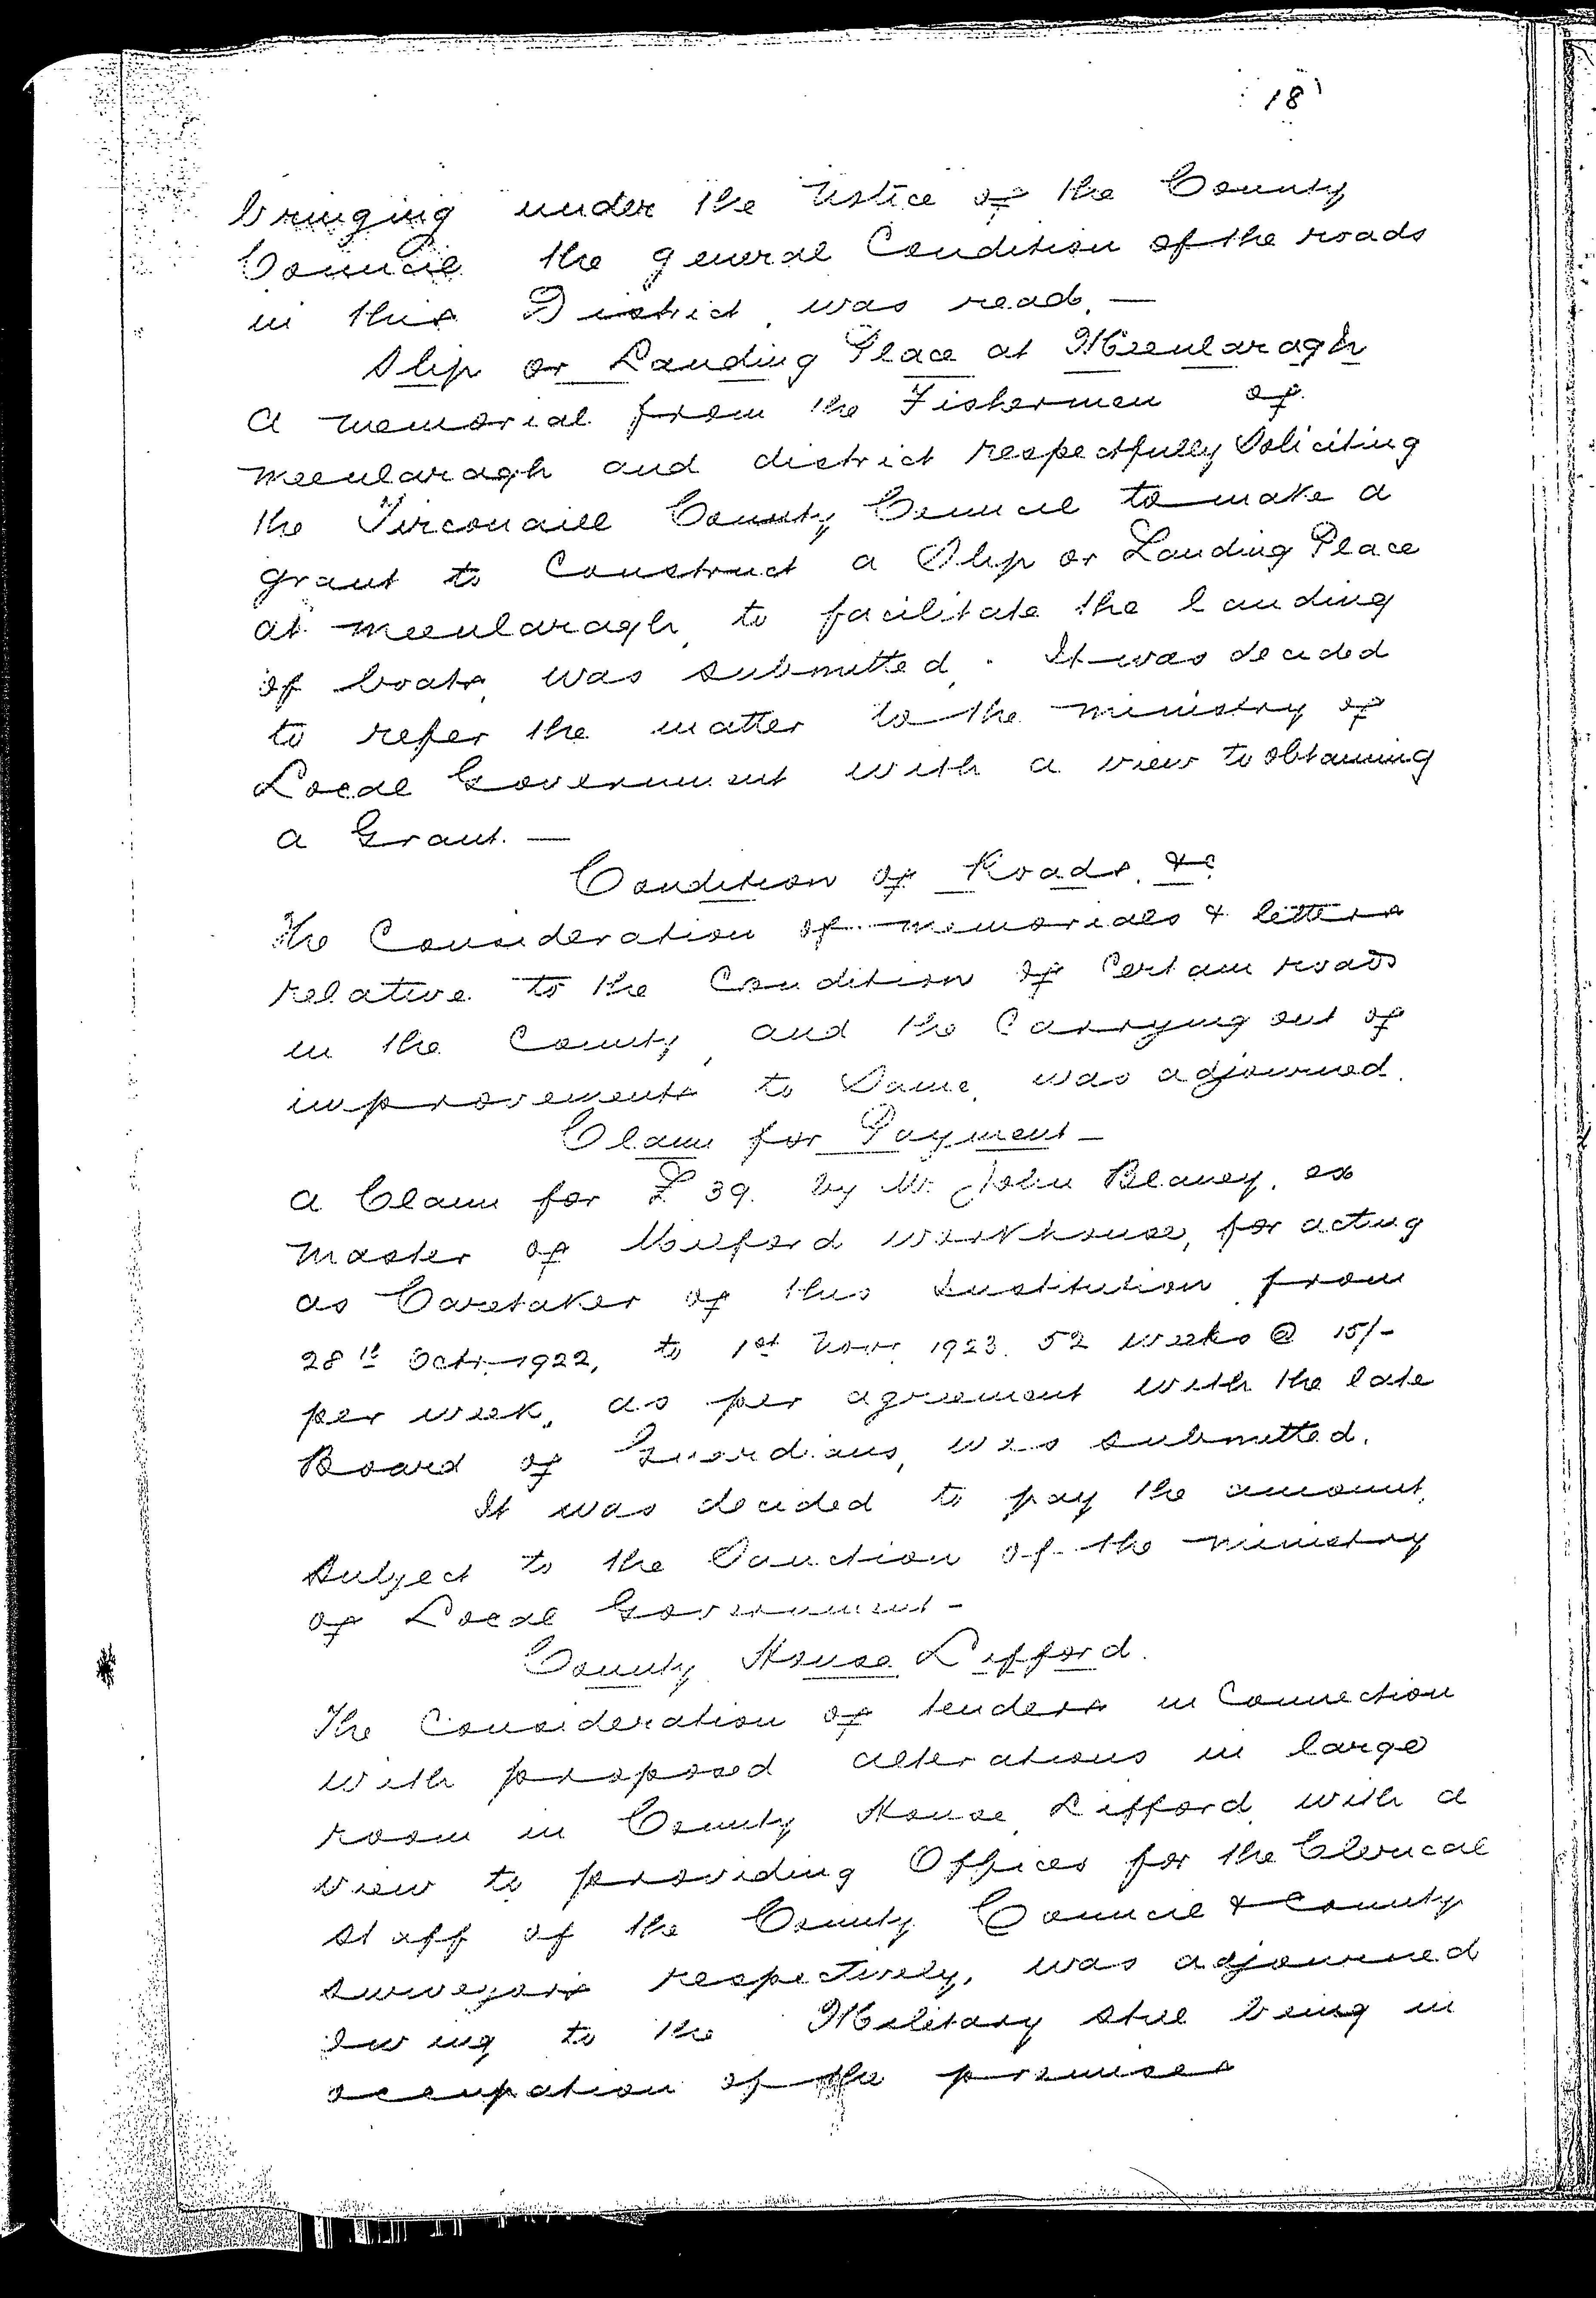 18
bringing under the notice of the County
Council the general Condition of the roads
in this District, was read. —
Slip or Landing Place at Meenlaragh
A memorial from the Fishermen of
Meenlaragh and district respectfully Soliciting
the Tirconaill County Council to make a
grant to Construct a Slip or Landing Place
at Meenlaragh, to facilitate the landing
of boats, was submitted. It was decided
to refer the matter to the Ministry of
Local Government with a view to obtaining
a Grant. —
Condition of Roads, &c
The Consideration of memorials & letters
relative to the Condition of Certain roads
in the County, and the Carrying out of
improvements to Same, was adjourned.
Claim for Payment —
A Claim for £39. by Mr. John Blaney, ex
Master of Milford Workhouse, for acting
as Caretaker of this Institution from
28th Octr. 1922, to 1st Novr. 1923. 52 weeks @ 15/-
per week, as per agreement with the late
Board of Guardians, was submitted.
It was decided to pay the amount,
subject to the Sanction of the Ministry
of Local Government —
County House Lifford.
The Consideration of tenders in Connection
with proposed alterations in large
room in County House, Lifford, with a
view to providing Offices for the Clerical
staff of the County Council & County
surveyors respectively, was adjourned
owing to the Military still being in
occupation of the premises